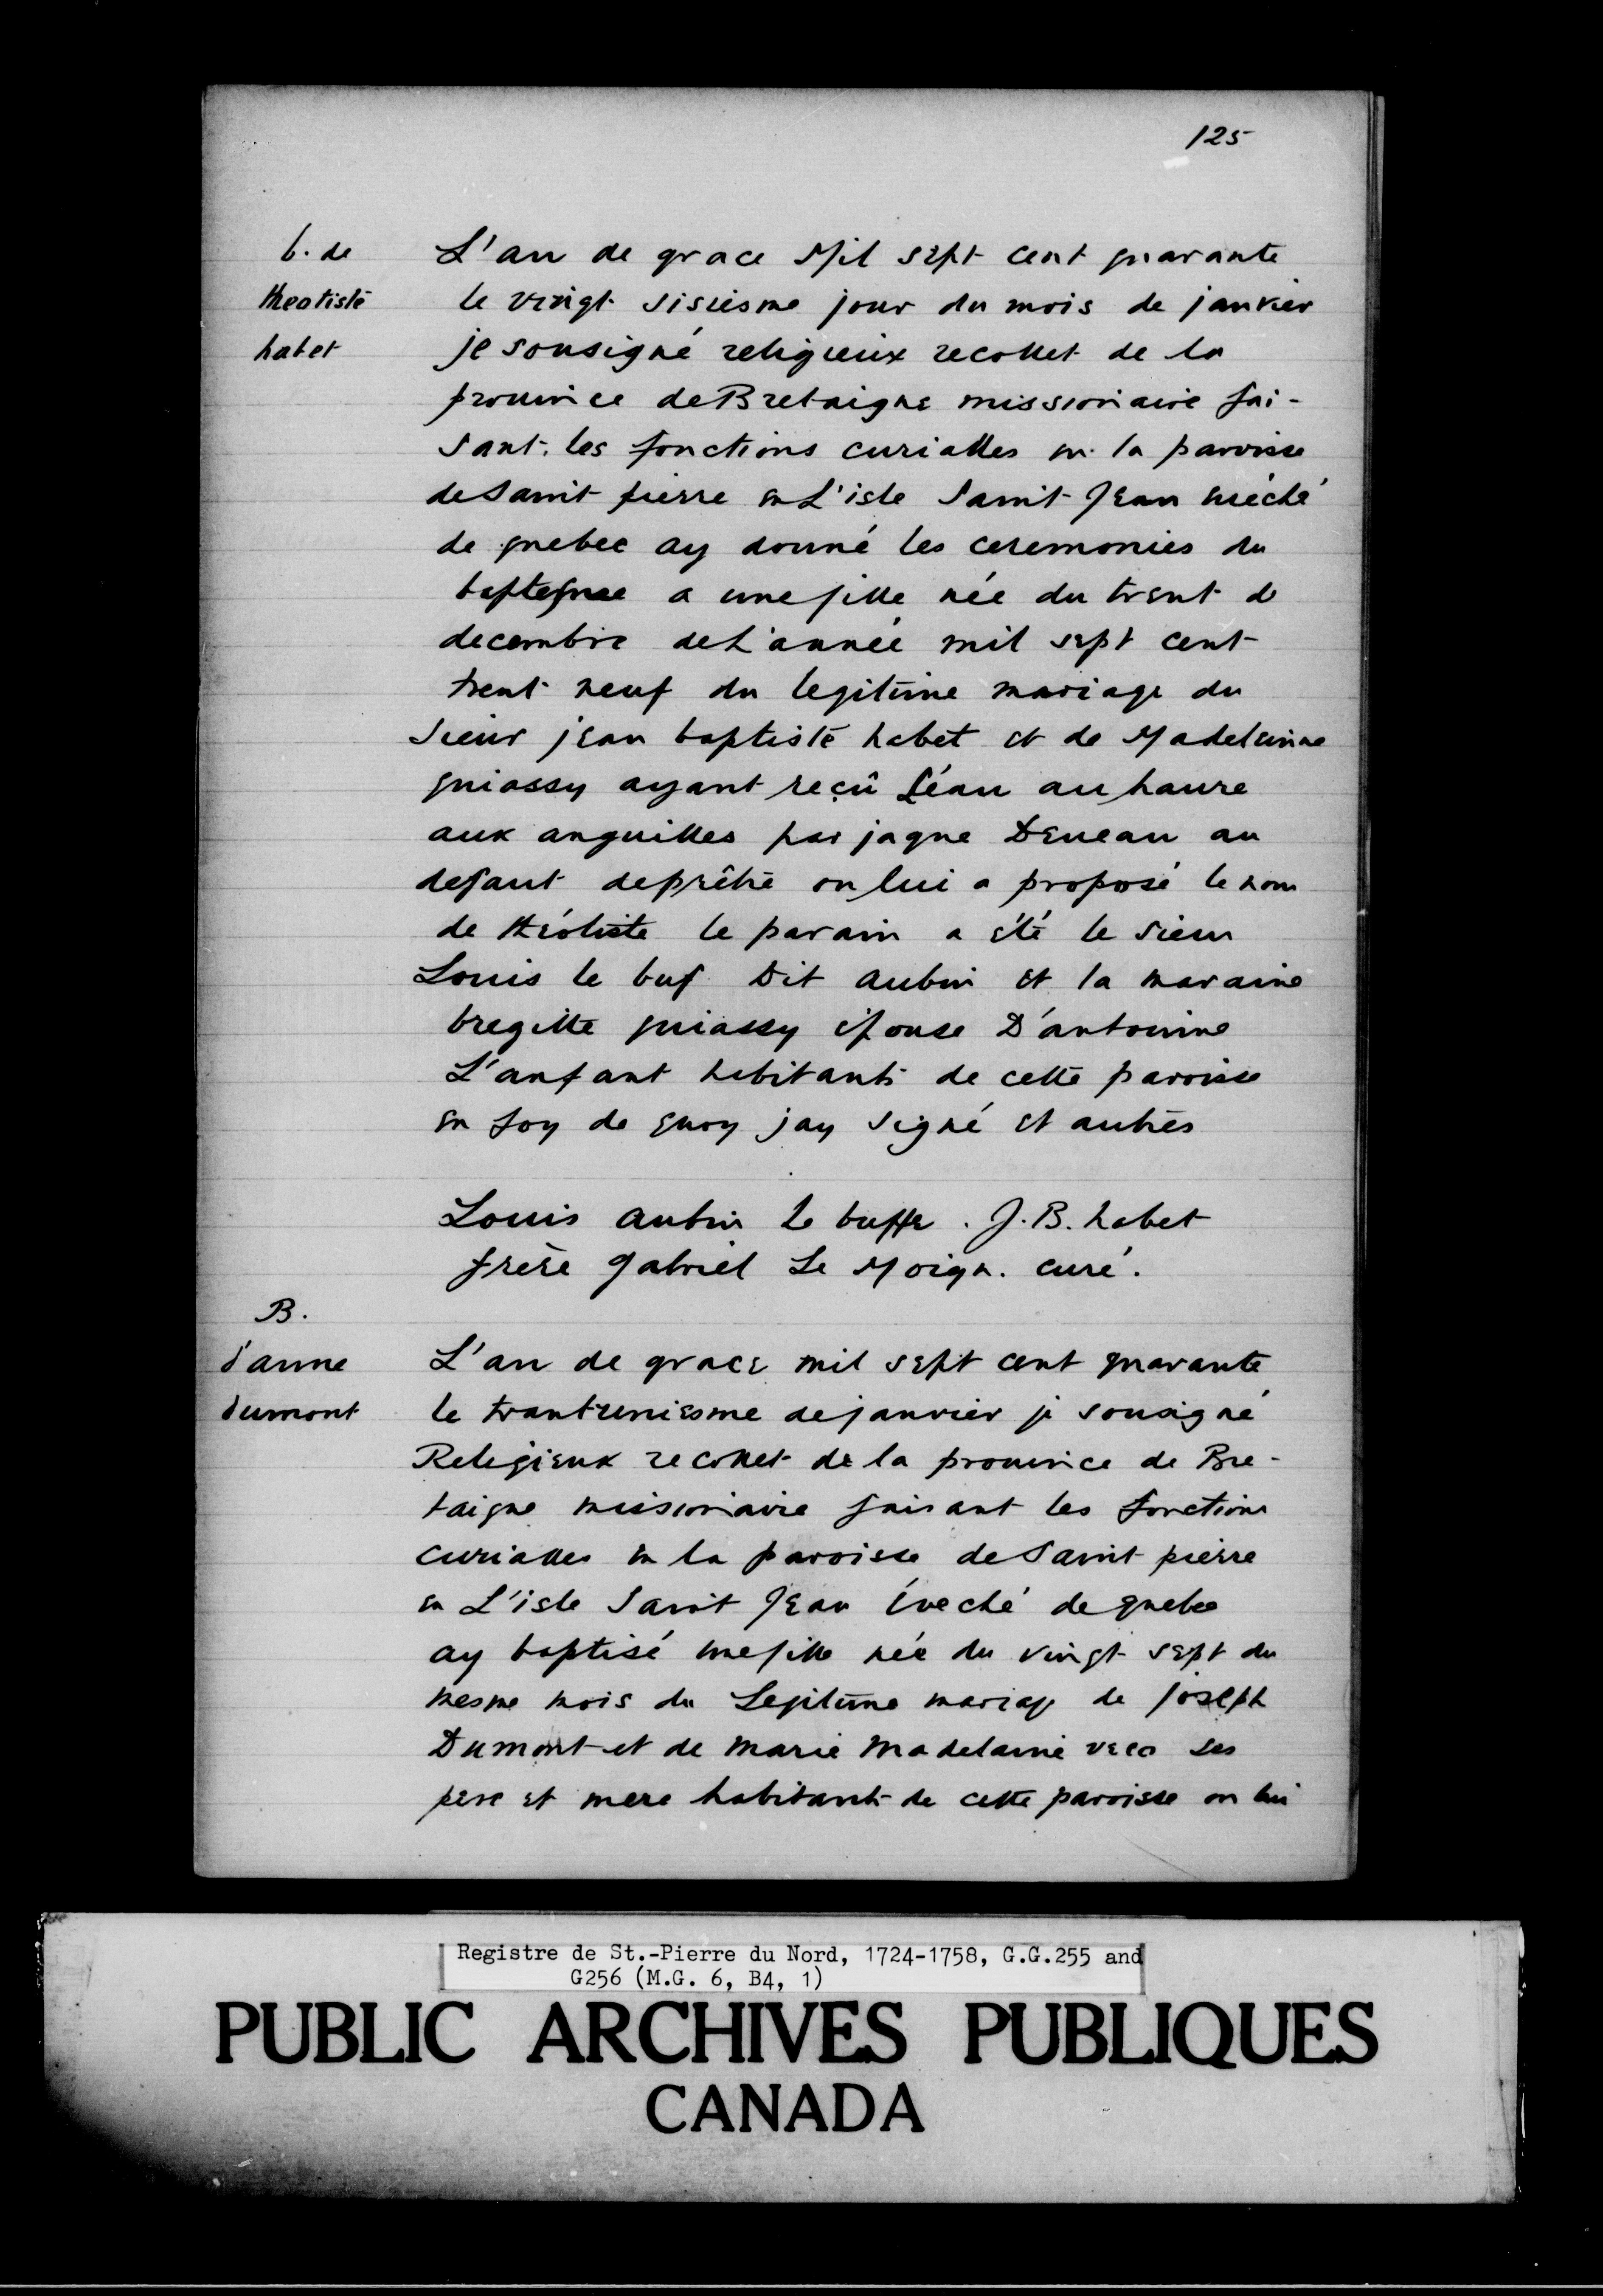 125
b. de
theotiste
habet
L'an de grace Mil sept cent quarante
le vingt sisiesme jour du mois de janvier
je sousigné religieux recollet de la
prouince de Bretaigne missionaire fai-
sant les fonctions curialles en la paroisse
de Saint pierre en L'isle Saint Jean eueché
de quebec ay donné les ceremonies du
baptesme a une fille née du trent de
decembre de L'année mil sept cent
trent neuf du legitime mariage du
Sieur jean baptiste habet et de Madeleinne
quiassy ayant reçû L'éau au haure
aux anguilles par jaque Deueau au
defaut de prêtre on lui a proposé le nom
de théotiste le parain a été le sieur
Louis le buf Dit aubin et la maraine
bregitte quiassy épouse D'antoinne
L'anfant habitants de cette paroisse
en foy de quoy jay signé et autres
Louis aubin le buffe . J.B. habet
frère gabriel Le Moign. curé.
B.
d'anne
dumont
L'an de grace mil sept cent quarante
le trantuniesme de janvier je sousigné
Religieux recollet de la prouince de Bre-
taigne missionaire faisant les fonctions
curialles en la paroisse de Saint pierre
en L'isle Saint Jean Éveché de quebec
ay baptisé une fille née du vingt sept du
mesme mois du Legitime mariage de joseph
Dumont et de Marie Madelaine veco ses
pere et mere habitants de cette paroisse on lui
Registre de St.-Pierre du Nord, 1724-1758, G.G.255 and
G256 (M.G. 6, B4, 1)
PUBLIC ARCHIVES PUBLIQUES
CANADA